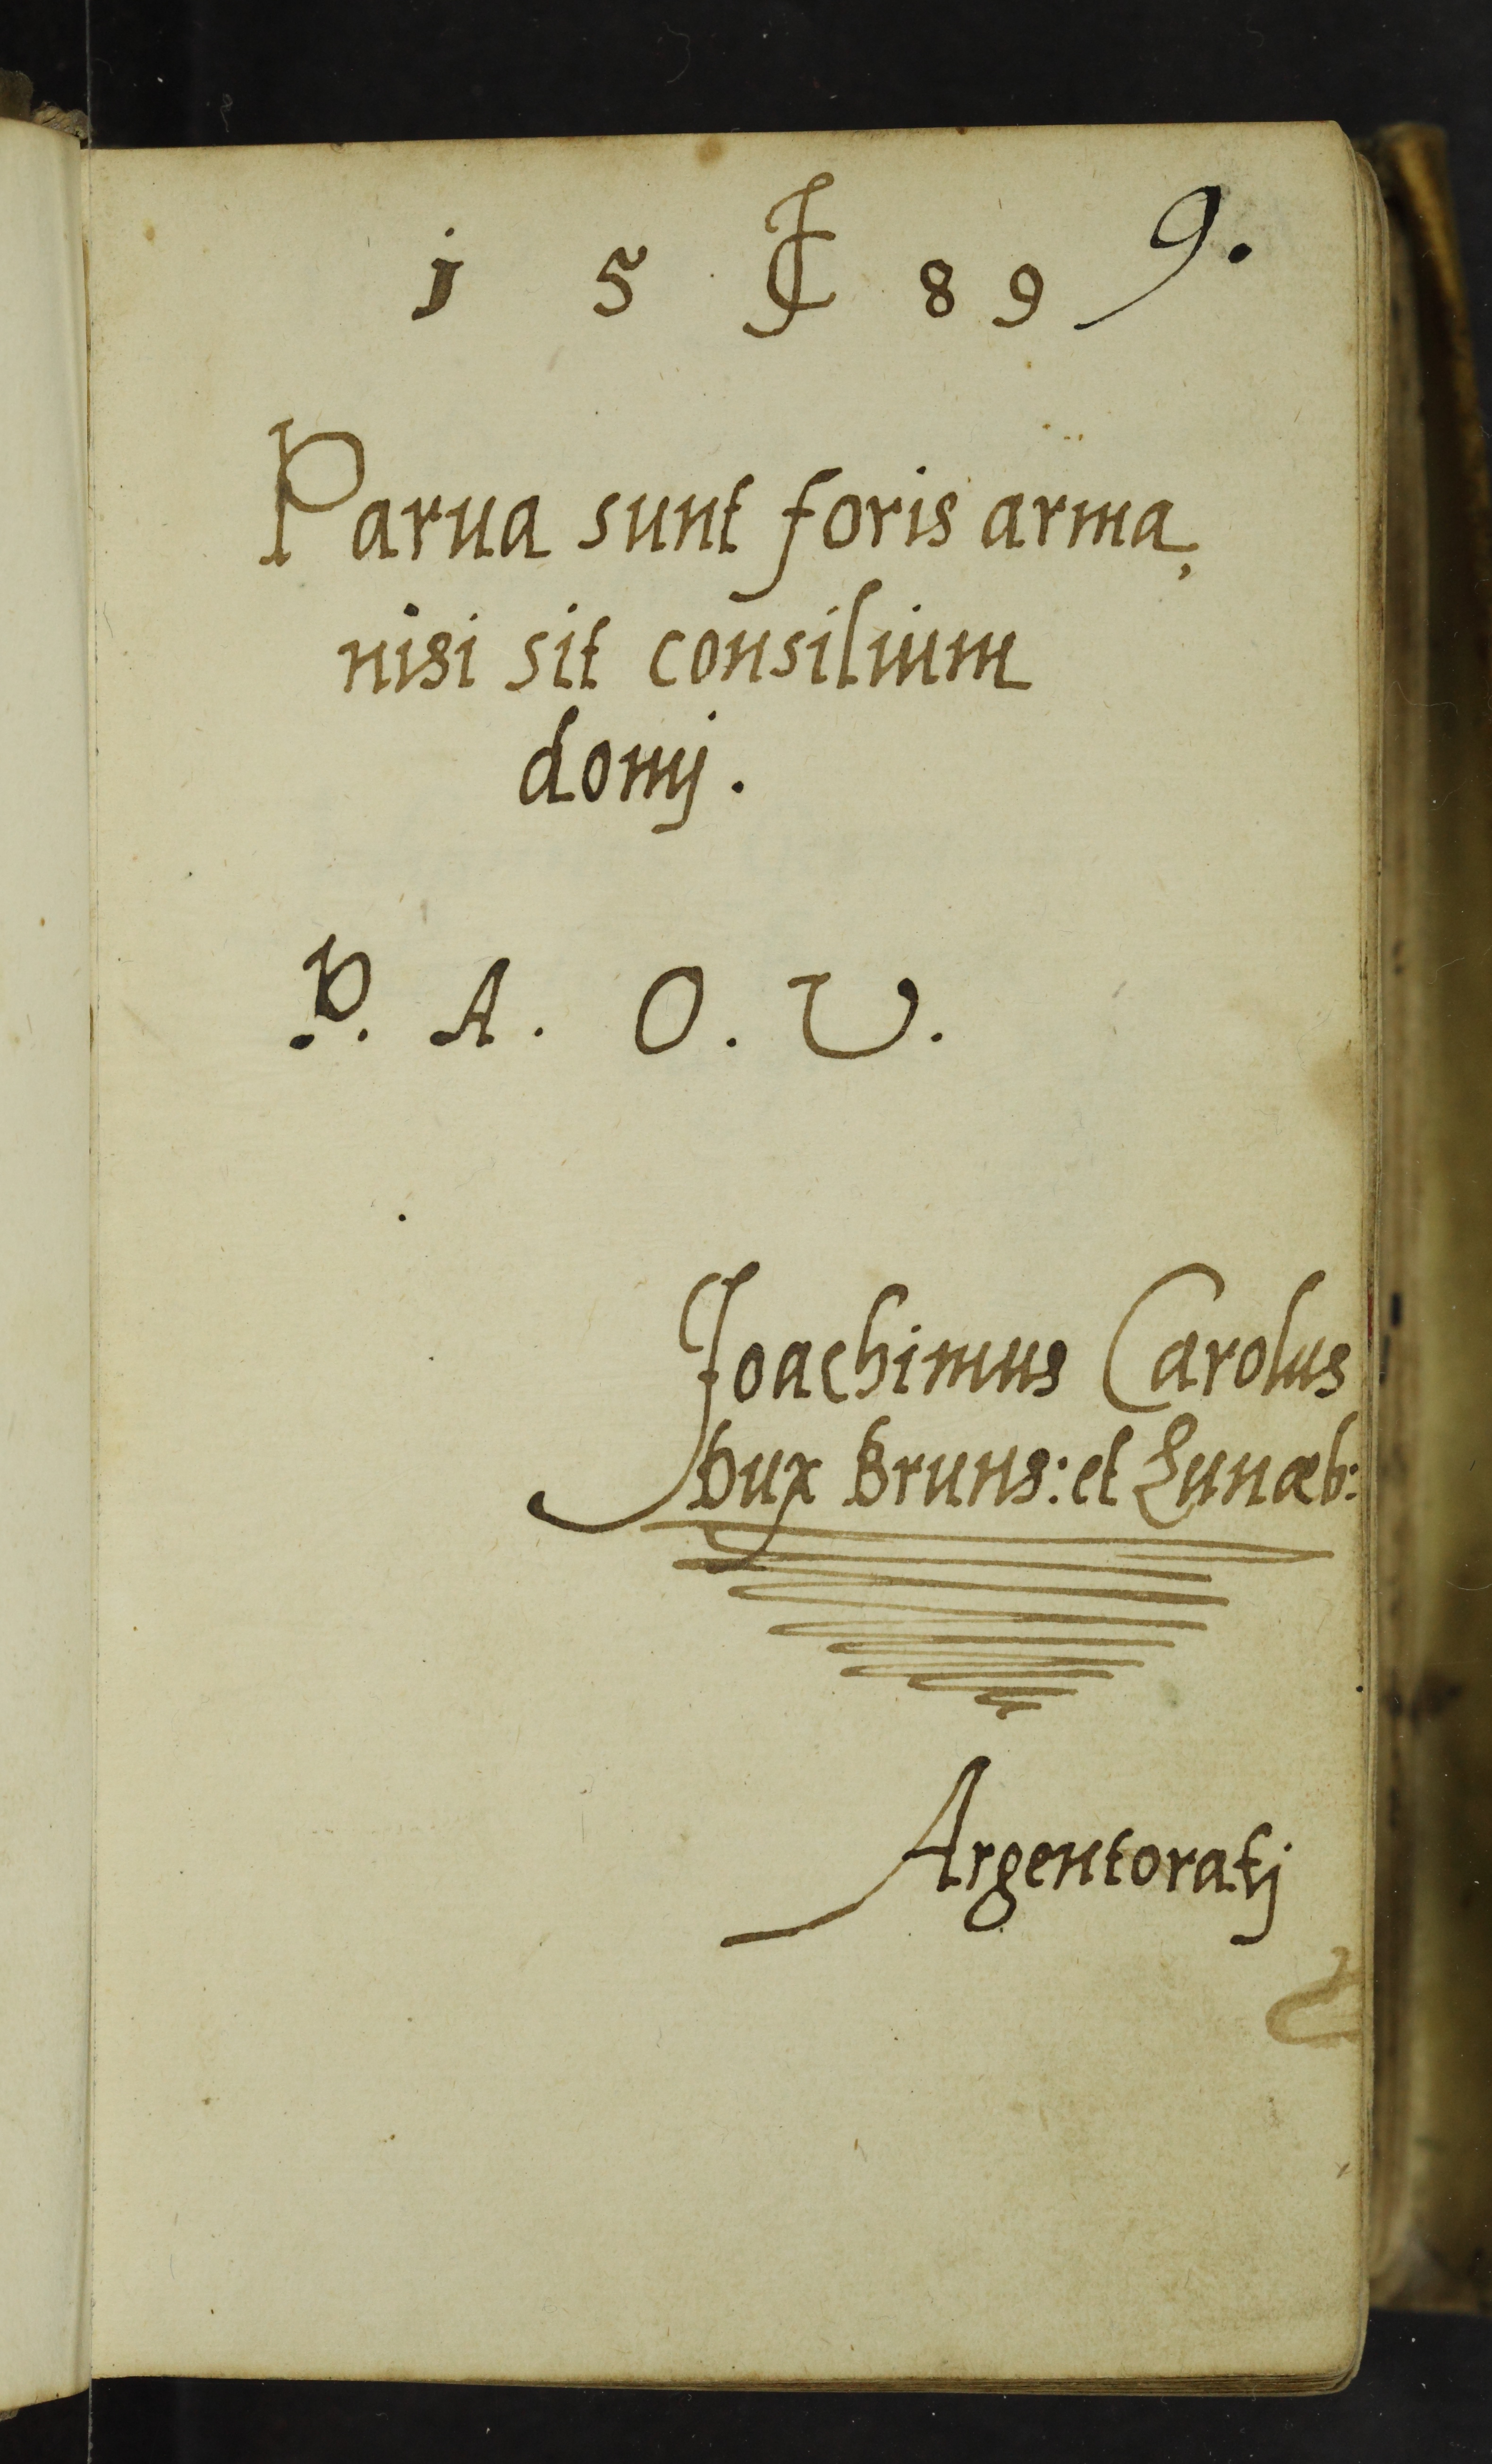 1 5 JC 89 9.
Parua sunt foris arma,
nisi sit consilium
domj.
D. A. O. V.
Joachimus Carolus
Dux Bruns: et Lunæb:
Argentoratj